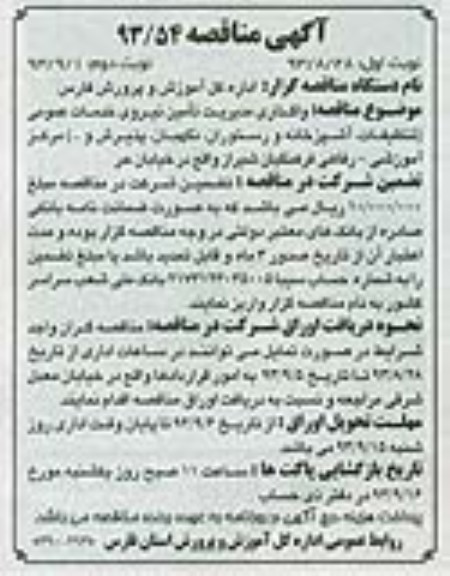 آگهی مناقصه ۹۳/۵۴
نوبت اول: ۹۳/۸/۲۸ نوبت دوم: ۹۳/۹/۱
نام دستگاه مناقصه گزار: اداره کل آموزش و پرورش فارس
موضوع مناقصه: واگذاری مدیریت تأمین نیروی خدمات عمومی
(تنظیفات، آشپزخانه و رستوران، نگهبان، پذیرش و ..) مرکز
آموزشی - رفاهی فرهنگیان شیراز واقع در خیابان حر
تضمین شرکت در مناقصه: تضمین شرکت در مناقصه مبلغ
ریال می باشد که به صورت ضمانت نامه بانکی
صادره از بانک های معتبر دولتی در وجه مناقصه گزار بوده و مدت
اعتبار آن از تاریخ صدور ۳ ماه و قابل تمدید باشد یا مبلغ تضمین
را به شماره حساب سیبا بانک ملی شعب سراسر
کشور به نام مناقصه گزار واریز نمایند.
نحوه دریافت اوراق شرکت در مناقصه: مناقصه گران واجد
شرایط در صورت تمایل می توانند در ساعات اداری از تاریخ
۹۳/۸/۲۸ تا تاریخ ۹۳/۹/۵ به امور قراردادها واقع در خیابان معدل
شرقی مراجعه و نسبت به دریافت اوراق مناقصه اقدام نمایند.
مهلت تحویل اوراق: از تاریخ ۹۳/۹/۶ تا پایان وقت اداری روز
شنبه ۹۳/۹/۱۵ می باشد.
تاریخ بازگشایی پاکت ها: ساعت ۱۱ صبح روز یکشنبه مورخ
۹۳/۹/۱۶ در دفتر ذی حساب
پرداخت هزینه درج آگهی در روزنامه به عهده برنده مناقصه می باشد.
روابط عمومی اداره کل آموزش و پرورش استان فارس